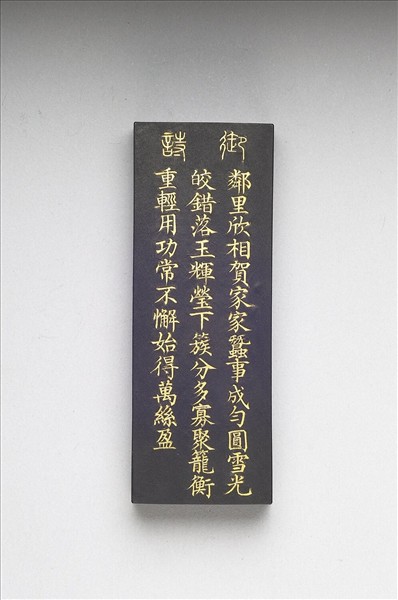 御詩
鄰里欣相賀家家蠶事成勻圓雪光
皎錯落玉輝瑩下簇分多寡聚籠衡
重輕用功常不懈始得萬絲盈